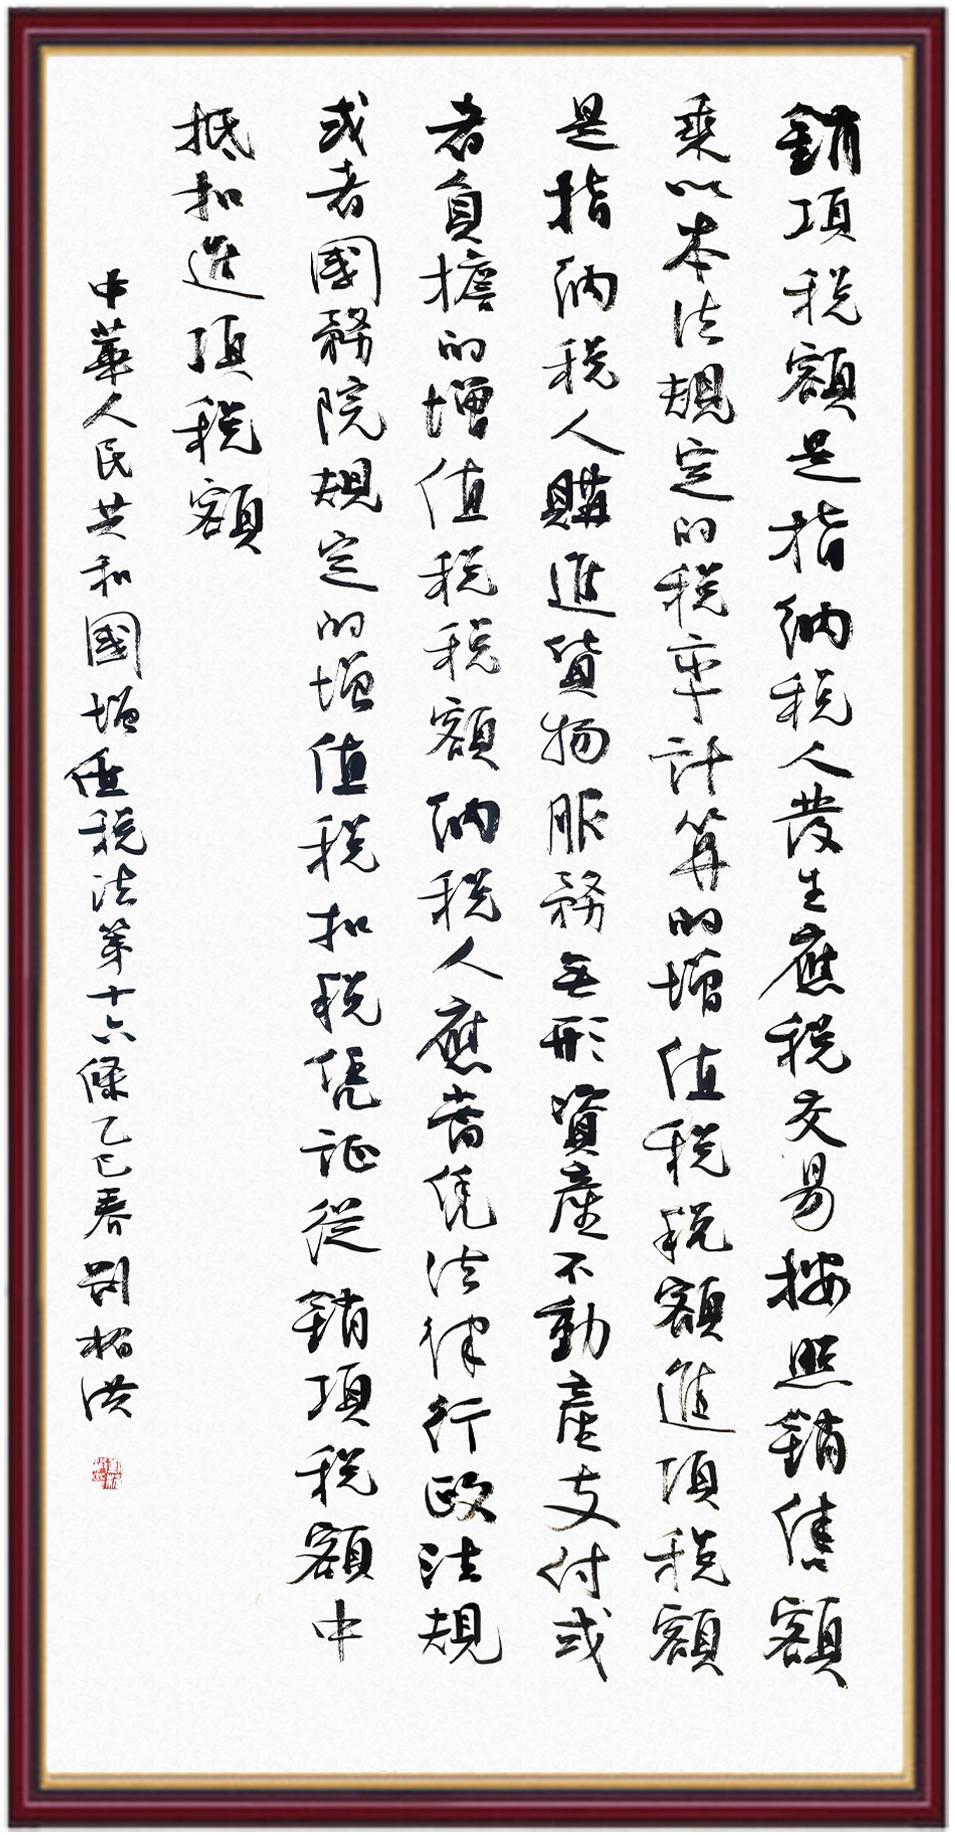 銷項税額是指納税人發生應税交易按照銷售額
乘以本法規定的税率計算的增值税税額進項税額
是指納税人購進貨物服務无形資產不動產支付或
者負擔的增值税税額納税人應當凭法律行政法規
或者國務院規定的增值税扣税凭证從銷項税額中
抵扣進項税額
中華人民共和國增值税法第十六條乙巳春劉柏洪